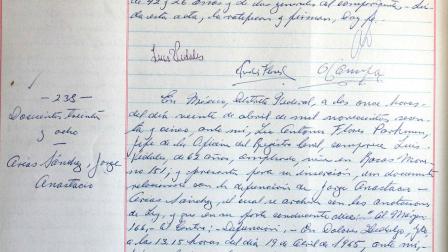 de 42 y 26 años y de sus generales el compareciente. - Leí-
da esta acta, la ratifican y firman, Doy fe.
Luis Vidales
- 238 -
Doscientos treinta
y ocho
Areas Sánchez, Jorge
Anastacio
En México, Distrito Federal, a las once horas
del día veinte de abril de mil novecientos sesen-
ta y cinco, ante mí, Lic. Antonio Flores
Jefe de la Oficina del Registro Civil, comparece Luis
Vidales, de 63 años, empleado, vive en Rosas More-
no 151, y presenta para su inserción, un documento
relacionado con la defunción de Jorge Anastacio
Areas Sánchez, el cual se archiva con las anotaciones
de ley, y que en su parte conducente dice: "Al Margen
166,- Al Centro: - Defunción, - En Dolores Hidalgo, Gto.,
a las 13.15 horas del día 19 de Abril de 1965, ante mí,-